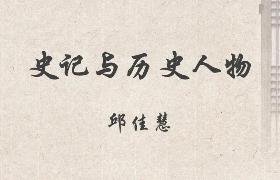 史记与历史人物
邱佳慧